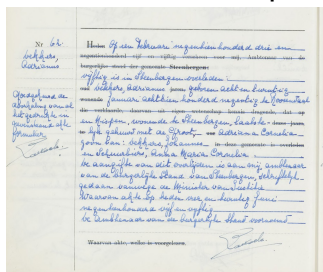 Nr 62
Dekkers,
Adrianus
Afgeschreven de
afwijking van al
het gedrukte in
nevenstaand akte
formulier.
Heden Op een februari negentienhonderd drie en
negentienhonderd vijf en vijftig verscheen voor mij, Ambtenaar van de
burgerlijke stand der gemeente Steenbergen:
vijftig is in Steenbergen overleden:
Dekkers, Adrianus geboren acht en twintig
januari achttienhonderd negentig te Roosendaal
die verklaarde, daarvan uit eigen wetenschap kennis dragende, dat op
en Nispen, wonende te Steenbergen, laatste-
lijk gehuwd met de Groot, Adriana Cornelia.
zoon van: Dekkers, Johannis in deze gemeente is overleden
en Schuurbiers, Anna Maria Cornelia.
De aangifte van dit overlijden is aan mij, ambtenaar
van de Burgerlijke Stand van Steenbergen, schriftelijk
gedaan vanwege de Minister van Justitie
Waarvan akte op heden zes en twintig juni
negentienhonderd vijf en vijftig
De Ambtenaar van de burgerlijke Stand voornoemd
Waarvan akte, welke is voorgelezen.